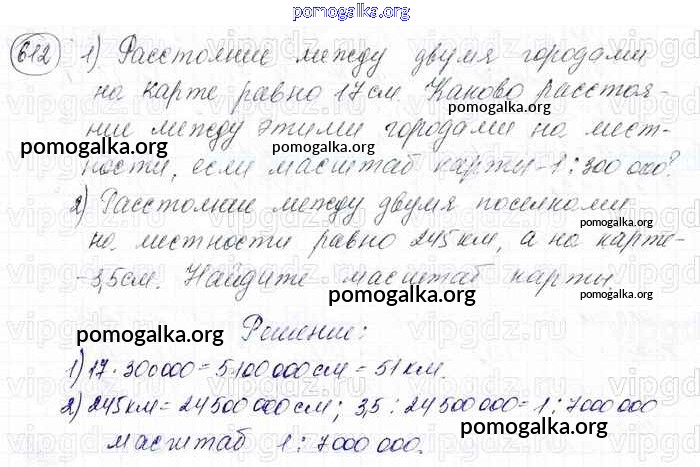 pomogalka.org
612 1) Расстояние между двумя городами
на карте равно 17 см. Каково расстоя-
pomogalka.org
ние между этими городами на мест-
pomogalka.org
ности, если масштаб карты - 1 : 300 000?
pomogalka.org
2) Расстояние между двумя поселками
pomogalka.org
на местности равно 245 км, а на карте-
- 3,5 см. Найдите масштаб карты.
pomogalka.org
pomogalka.org
pomogalka.org
Решение:
1) 17 · 300000 = 5100000 см = 51 км.
pomogalka.org
2) 245 км = 24500000 см; 3,5 : 24 500 000 = 1 : 7000000
pomogalka.org
масштаб 1 : 7 000 000.